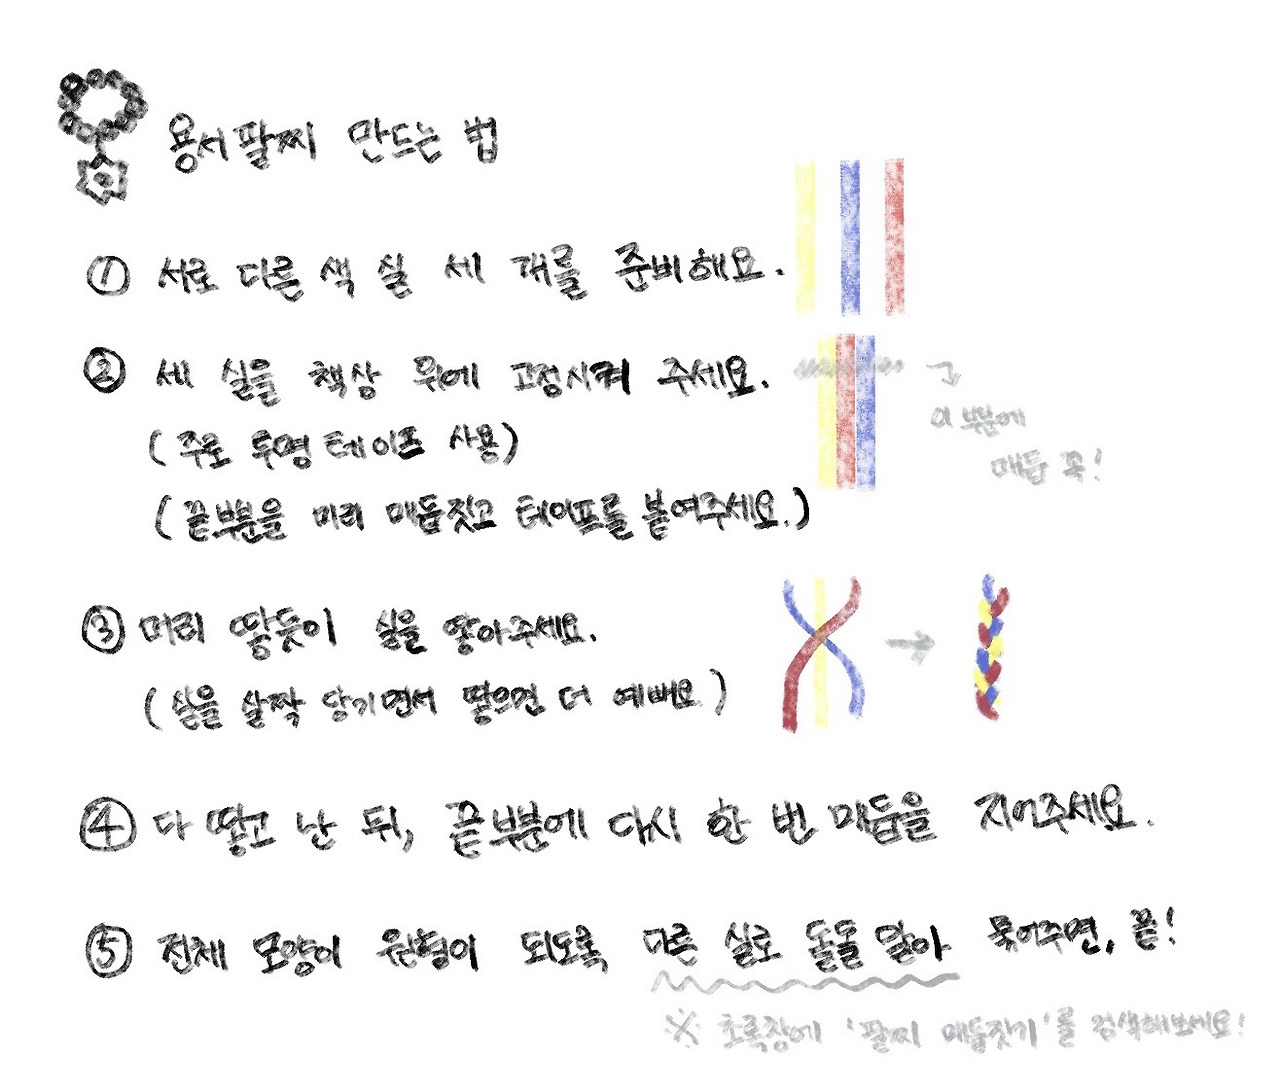 용서팔찌 만드는 법
① 서로 다른 색 실 세 개를 준비해요.
② 세 실을 책상 위에 고정시켜 주세요.
(주로 투명테이프 사용)
(끝부분을 미리 매듭짓고 테이프를 붙여주세요.)
이 부분에
매듭 꼭!
③ 머리 땋듯이 실을 땋아주세요.
(실을 살짝 당기면서 땋으면 더 예뻐요)
④ 다 땋고 난 뒤, 끝부분에 다시 한 번 매듭을 지어주세요.
⑤ 전체 모양이 원형이 되도록 다른 실로 돌돌 말아 묶어주면, 끝!
※ 초록창에 '팔찌 매듭짓기'를 검색해보세요!